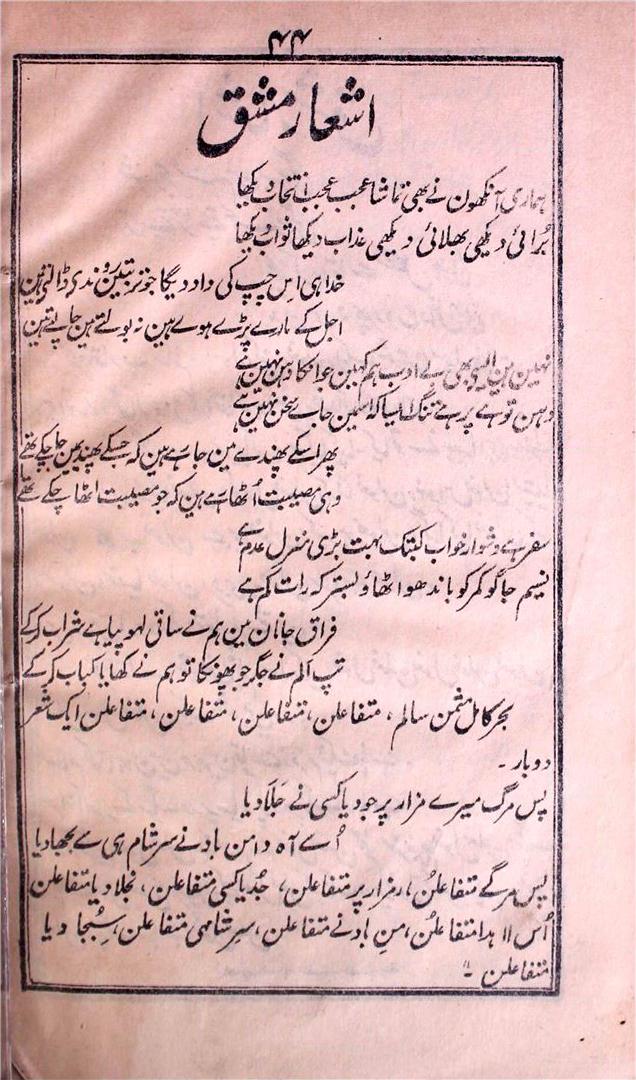 ۴۴
اشعار مشق
ہماری آنکھون نے بھی تماشا عجب عجب انتخاب دیکھا
بُرائی دیکھی بھلائی دیکھی عذاب دیکھا ثواب دیکھا
خدا ہی اس چپ کی داد دیگا جو تربتین روندی ڈالتی ہین
اجل کے مارے پڑے ہوے ہین نہ بولتے ہین نہ چالتے ہین
نہین ہین ایسی بھی بے ادب ہم کہین جو انکا دہن نہین ہے
دہن تو ہے پر ہے تنگ ایسا کہ اسمین جاے سخن نہین ہے
پھر اسکے پھندے مین جا رہے ہین کہ جسکے پھندے مین جا چکے تھے
وہی مصیبت اُٹھا رہے ہین کہ جو مصیبت اٹھا چکے تھے
سفر ہے دشوار خواب کبتک بہت بڑی منزل عدم ہے
نسیم جاگو کمر کو باندھو اٹھاؤ بستر کہ رات کم ہے
فراق جانان مین ہم نے ساقی لہو پیا ہے شراب کرکے
تپ الم نے جگر جو بھونکا تو ہم نے کھایا کباب کرکے
بحر کامل مثمن سالم، متفاعلن، متفاعلن، متفاعلن، متفاعلن ایک شعر
دوبار۔
پس مرگ میرے مزار پر جو دیا کسی نے جلا دیا
اُسے آہ دامن باد نے سر شام ہی سے بجھا دیا
پس مرگے متفاعلن، رمزار پر متفاعلن، جُدیا کسی متفاعلن، نجلا دیا متفاعلن
اُس اا ہدا متفاعلن، من باد نے متفاعلن، سرِ شامہی متفاعلن، سبُجا دیا
متفاعلن ۔